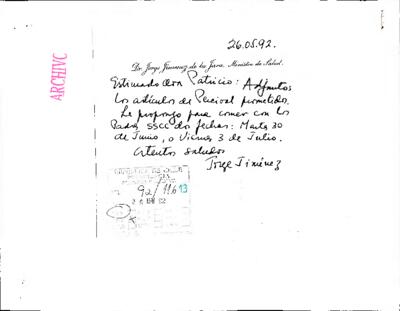 ARCHIVO
26.05.92.
Dr. Jorge Jimenez de la Jara, Ministro de Salud.
Estimado don Patricio: Adjuntos
los artículos de Percival prometidos.
Le propongo para comer con los
Padres SSCC dos fechas: Marta 30
de Junio, o Viernes 3 de Julio.
Atentos saludos
Jorge Jiménez
92/11613